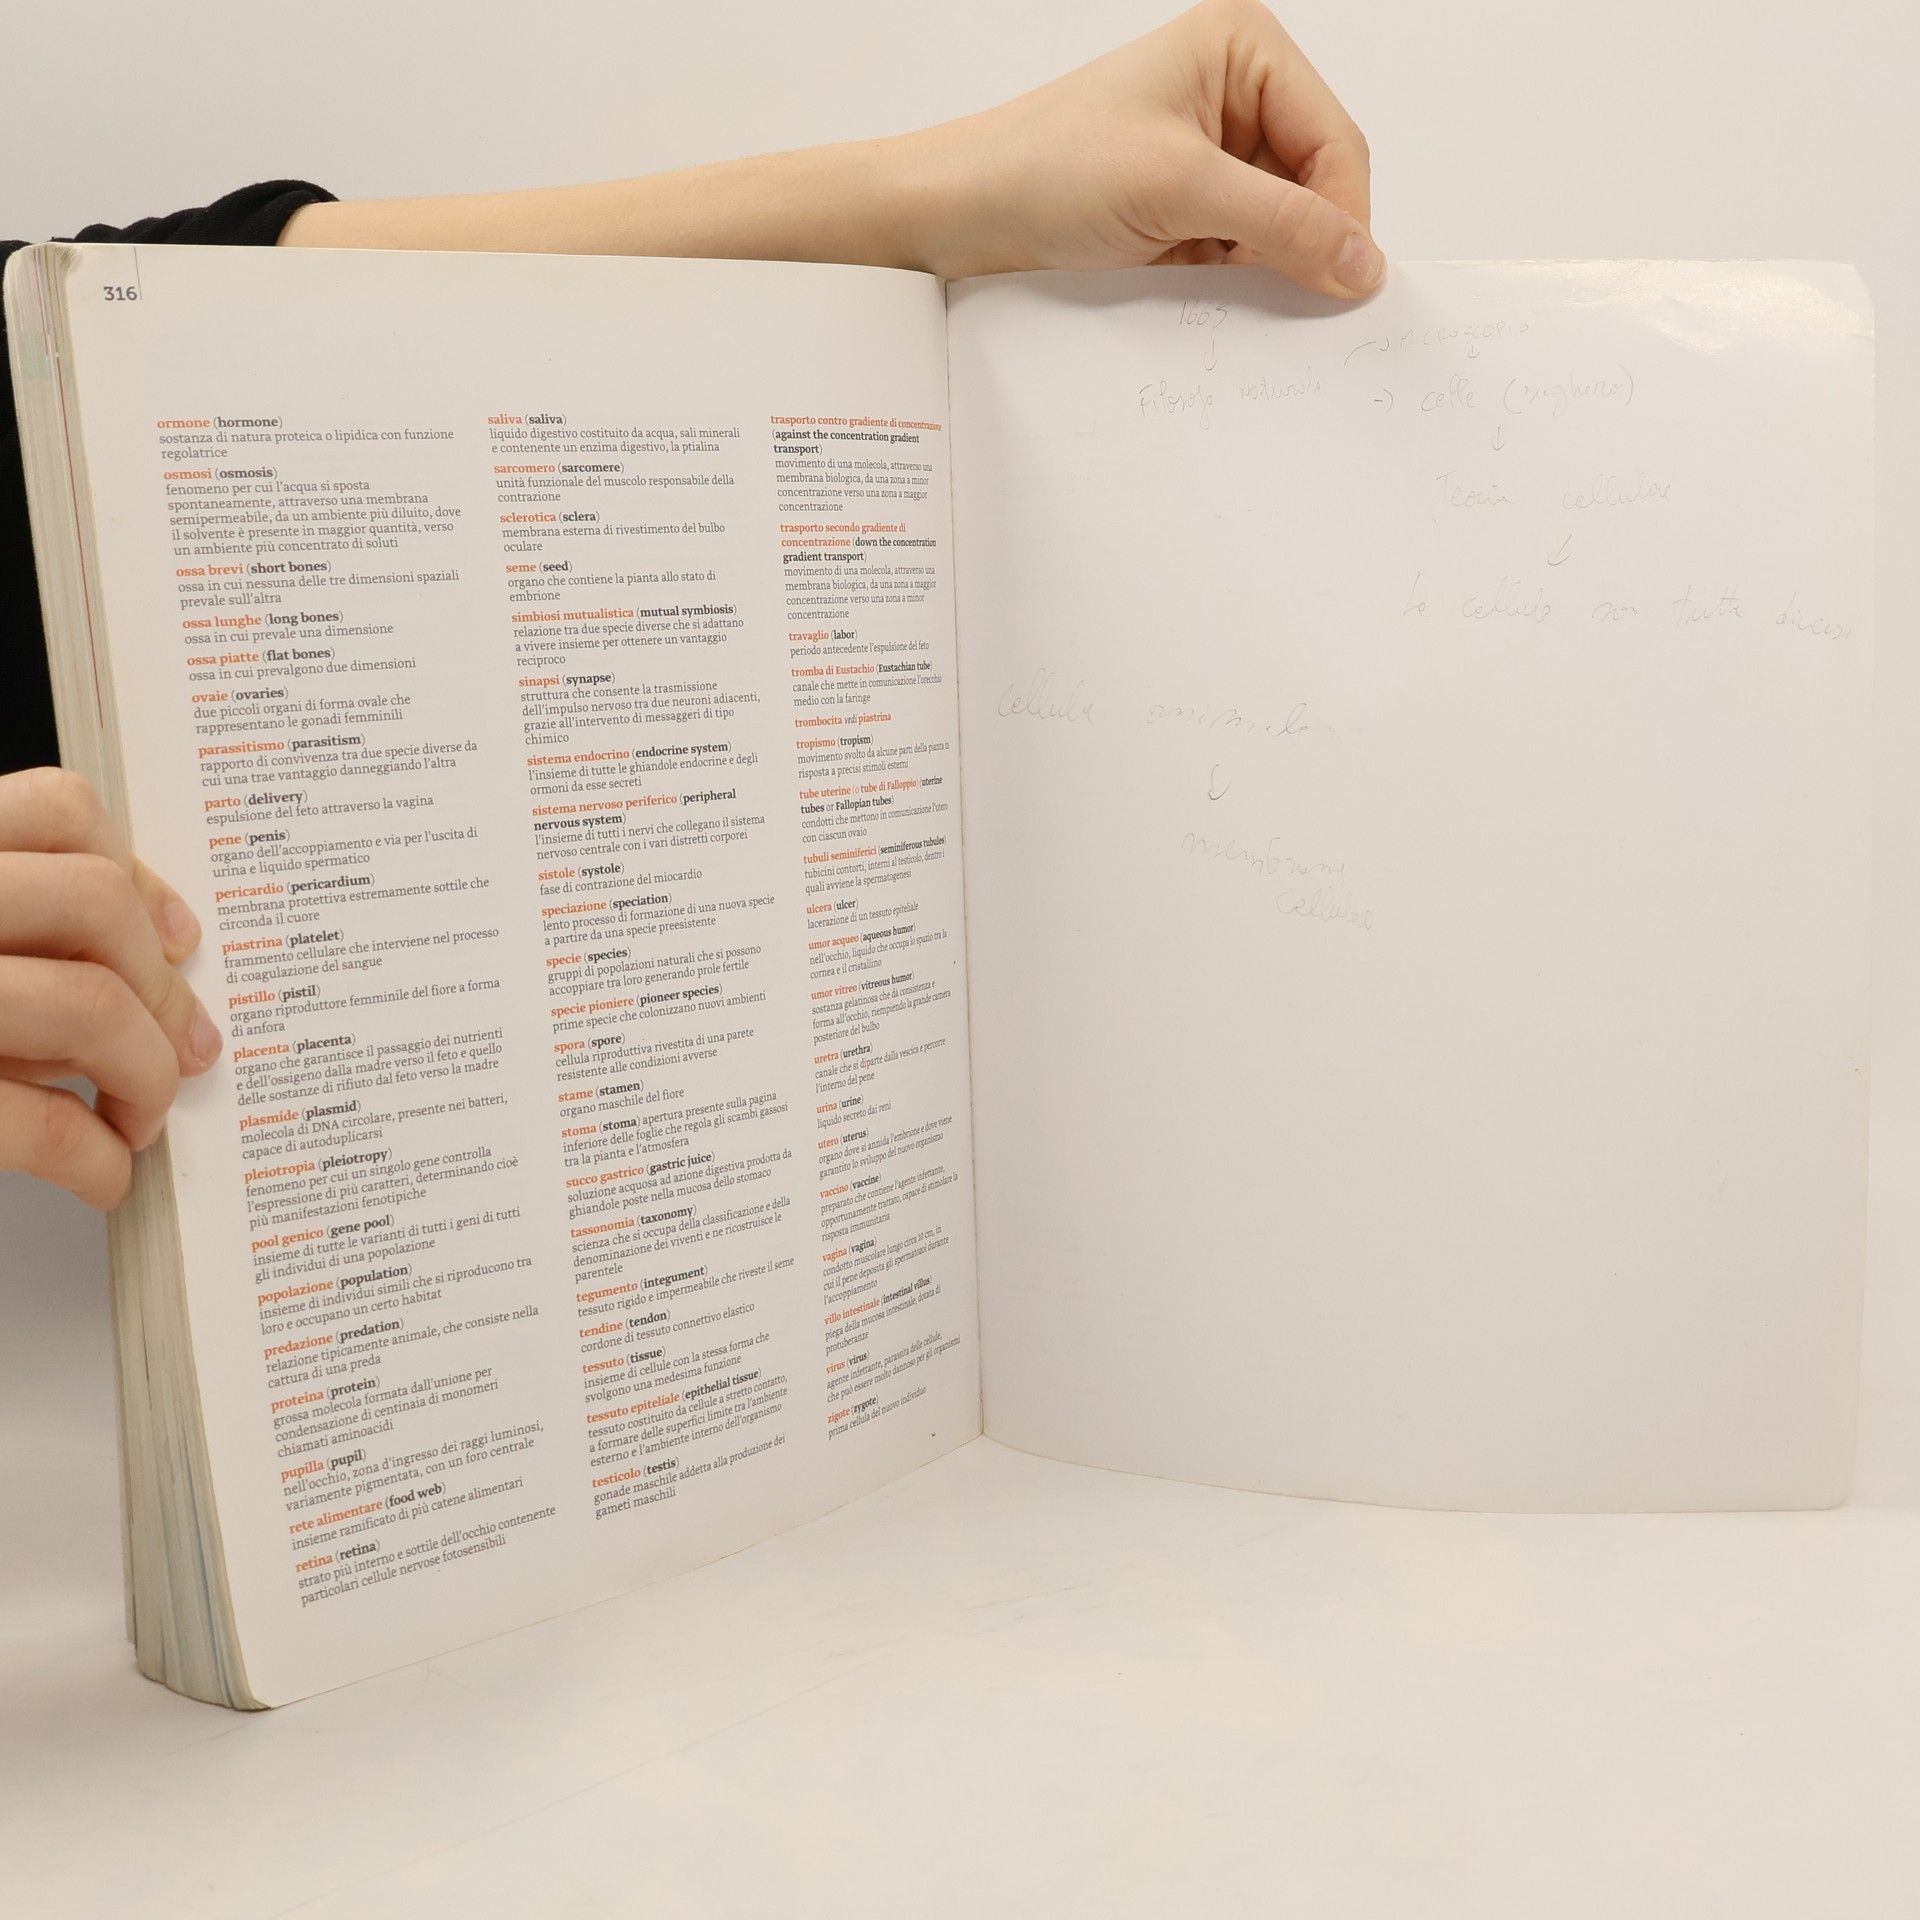 316
ormone (hormone)
sostanza di natura proteica o lipidica con funzione
regolatrice
osmosi (osmosis)
fenomeno per cui l'acqua si sposta
spontaneamente, attraverso una membrana
semipermeabile, da un ambiente più diluito, dove
il solvente è presente in maggior quantità, verso
un ambiente più concentrato di soluti
ossa brevi (short bones)
ossa in cui nessuna delle tre dimensioni spaziali
prevale sull'altra
ossa lunghe (long bones)
ossa in cui prevale una dimensione
ossa piatte (flat bones)
ossa in cui prevalgono due dimensioni
ovaie (ovaries)
due piccoli organi di forma ovale che
rappresentano le gonadi femminili
parassitismo (parasitism)
rapporto di convivenza tra due specie diverse da
cui una trae vantaggio danneggiando l'altra
parto (delivery)
espulsione del feto attraverso la vagina
pene (penis)
organo dell'accoppiamento e via per l'uscita di
urina e liquido spermatico
pericardio (pericardium)
membrana protettiva estremamente sottile che
circonda il cuore
piastrina (platelet)
frammento cellulare che interviene nel processo
di coagulazione del sangue
pistillo (pistil)
organo riproduttore femminile del fiore a forma
di anfora
placenta (placenta)
organo che garantisce il passaggio dei nutrienti
e dell'ossigeno dalla madre verso il feto e quello
delle sostanze di rifiuto dal feto verso la madre
plasmide (plasmid)
molecola di DNA circolare, presente nei batteri,
capace di autoduplicarsi
pleiotropia (pleiotropy)
fenomeno per cui un singolo gene controlla
l'espressione di più caratteri, determinando cioè
più manifestazioni fenotipiche
pool genico (gene pool)
insieme di tutte le varianti di tutti i geni di tutti
gli individui di una popolazione
popolazione (population)
insieme di individui simili che si riproducono tra
loro e occupano un certo habitat
predazione (predation)
relazione tipicamente animale, che consiste nella
cattura di una preda
proteina (protein)
grossa molecola formata dall'unione per
condensazione di centinaia di monomeri
chiamati aminoacidi
pupilla (pupil)
nell'occhio, zona d'ingresso dei raggi luminosi,
variamente pigmentata, con un foro centrale
rete alimentare (food web)
insieme ramificato di più catene alimentari
retina (retina)
strato più interno e sottile dell'occhio contenente
particolari cellule nervose fotosensibili
saliva (saliva)
liquido digestivo costituito da acqua, sali minerali
e contenente un enzima digestivo, la ptialina
sarcomero (sarcomere)
unità funzionale del muscolo responsabile della
contrazione
sclerotica (sclera)
membrana esterna di rivestimento del bulbo
oculare
seme (seed)
organo che contiene la pianta allo stato di
embrione
simbiosi mutualistica (mutual symbiosis)
relazione tra due specie diverse che si adattano
a vivere insieme per ottenere un vantaggio
reciproco
sinapsi (synapse)
struttura che consente la trasmissione
dell'impulso nervoso tra due neuroni adiacenti,
grazie all'intervento di messaggeri di tipo
chimico
sistema endocrino (endocrine system)
l'insieme di tutte le ghiandole endocrine e degli
ormoni da esse secreti
sistema nervoso periferico (peripheral
nervous system)
l'insieme di tutti i nervi che collegano il sistema
nervoso centrale con i vari distretti corporei
sistole (systole)
fase di contrazione del miocardio
speciazione (speciation)
lento processo di formazione di una nuova specie
a partire da una specie preesistente
specie (species)
gruppi di popolazioni naturali che si possono
accoppiare tra loro generando prole fertile
specie pioniere (pioneer species)
prime specie che colonizzano nuovi ambienti
spora (spore)
cellula riproduttiva rivestita di una parete
resistente alle condizioni avverse
stame (stamen)
organo maschile del fiore
stoma (stoma) apertura presente sulla pagina
inferiore delle foglie che regola gli scambi gassosi
tra la pianta e l'atmosfera
succo gastrico (gastric juice)
soluzione acquosa ad azione digestiva prodotta da
ghiandole poste nella mucosa dello stomaco
tassonomia (taxonomy)
scienza che si occupa della classificazione e della
denominazione dei viventi e ne ricostruisce le
parentele
tegumento (integument)
tessuto rigido e impermeabile che riveste il seme
tendine (tendon)
cordone di tessuto connettivo elastico
tessuto (tissue)
insieme di cellule con la stessa forma che
svolgono una medesima funzione
tessuto epiteliale (epithelial tissue)
tessuto costituito da cellule a stretto contatto,
a formare delle superfici limite tra l'ambiente
esterno e l'ambiente interno dell'organismo
testicolo (testis)
gonade maschile addetta alla produzione dei
gameti maschili
trasporto contro gradiente di concentrazione
(against the concentration gradient
transport)
movimento di una molecola, attraverso una
membrana biologica, da una zona a minor
concentrazione verso una zona a maggior
concentrazione
trasporto secondo gradiente di
concentrazione (down the concentration
gradient transport)
movimento di una molecola, attraverso una
membrana biologica, da una zona a maggior
concentrazione verso una zona a minor
concentrazione
travaglio (labor)
periodo antecedente l'espulsione del feto
tromba di Eustachio (Eustachian tube)
canale che mette in comunicazione l'orecchio
medio con la faringe
trombocita vedi piastrina
tropismo (tropism)
movimento svolto da alcune parti della pianta in
risposta a precisi stimoli esterni
tube uterine (o tube di Falloppio) (uterine
tubes or Fallopian tubes)
condotti che mettono in comunicazione l'utero
con ciascun ovaio
tubuli seminiferici (seminiferous tubules)
tubicini contorti, interni al testicolo, dentro i
quali avviene la spermatogenesi
ulcera (ulcer)
lacerazione di un tessuto epiteliale
umor acqueo (aqueous humor)
nell'occhio, liquido che occupa lo spazio tra la
cornea e il cristallino
umor vitreo (vitreous humor)
sostanza gelatinosa che dà consistenza e
forma all'occhio, riempiendo la grande camera
posteriore del bulbo
uretra (urethra)
canale che si diparte dalla vescica e percorre
l'interno del pene
urina (urine)
liquido secreto dai reni
utero (uterus)
organo dove si annida l'embrione e dove viene
garantito lo sviluppo del nuovo organismo
vaccino (vaccine)
preparato che contiene l'agente infettante,
opportunamente trattato, capace di stimolare la
risposta immunitaria
vagina (vagina)
condotto muscolare lungo circa 10 cm, in
cui il pene deposita gli spermatozoi durante
l'accoppiamento
villo intestinale (intestinal villus)
piega della mucosa intestinale, dotata di
protuberanze
virus (virus)
agente infettante, parassita delle cellule,
che può essere molto dannoso per gli organismi
zigote (zygote)
prima cellula del nuovo individuo
1665
↓
MICROSCOPIO
↓
Filosofo naturale → celle (sughero)
↓
Teoria cellulare
↓
Le cellule son tutte diverse
cellula animale
↓
membrana
cellulare